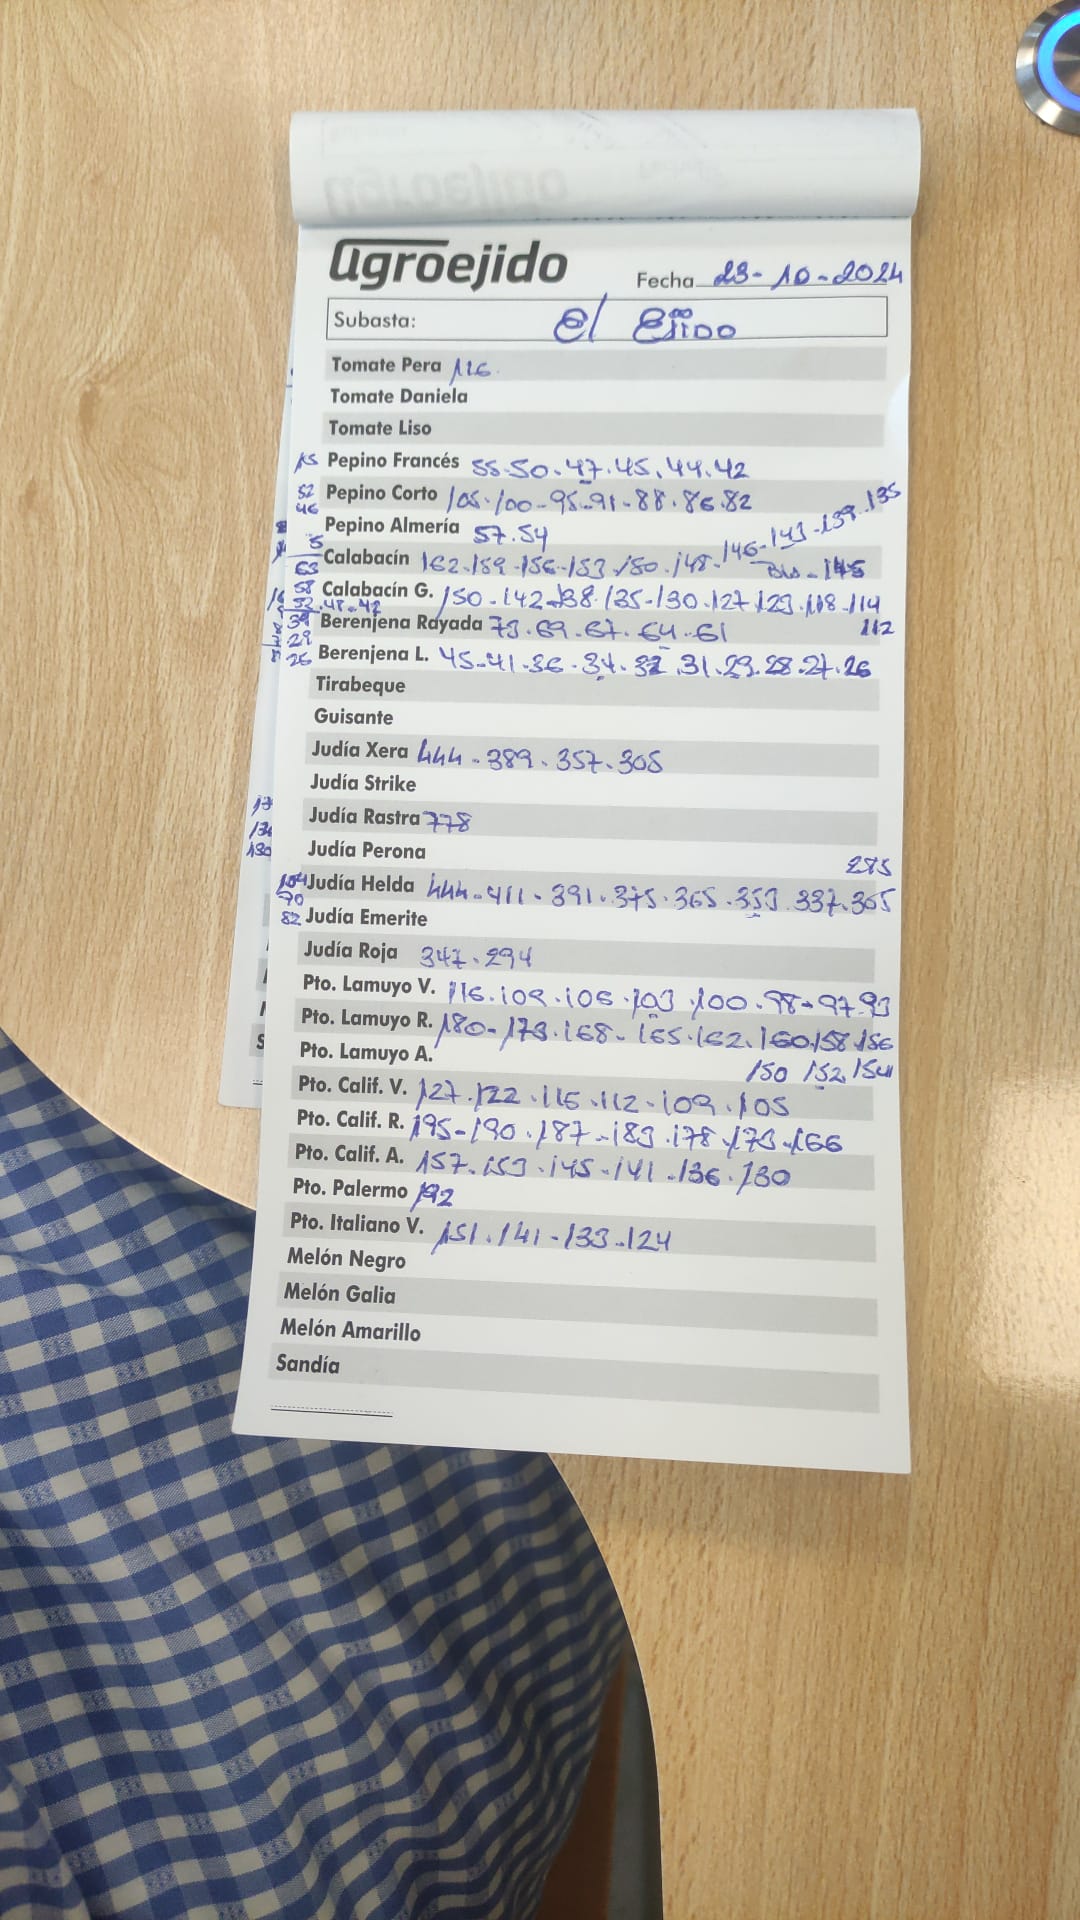 agroejido
Fecha 23-10-2024
Subasta: El Ejido
Tomate Pera 116.
Tomate Daniela
Tomate Liso
Pepino Francés 55.50.47.45.44.42
Pepino Corto 105.100-95-91-88.86.82
Pepino Almería 57.54
Calabacín 162.159-156-153.150.148-146-143-139.135
Bio-145
Calabacín G. 150-142-138.135-130.127.123.118-114
112
Berenjena Rayada 73.69.67.64.61
Berenjena L. 45-41.36.34.32.31.29.28.27.26
Tirabeque
Guisante
Judía Xera 444-389.357.305
Judía Strike
Judía Rastra 778
Judía Perona
285
Judía Helda 444-411-391.375.365.353.337.305
Judía Emerite
Judía Roja 347.294
Pto. Lamuyo V. 116.109.106.103.100.98-97.93
Pto. Lamuyo R. 180-173.168-165.162.160.158.156
Pto. Lamuyo A.
150 152 154
Pto. Calif. V. 127.122.116.112-109.105
Pto. Calif. R. 195-190.187-183.178.173-166
Pto. Calif. A. 157.153.145-141.136.130
Pto. Palermo 192
Pto. Italiano V. 151.141-133-124
Melón Negro
Melón Galia
Melón Amarillo
Sandía
52
46
5
63
58
52.48.42
39
29
26
104
90
82